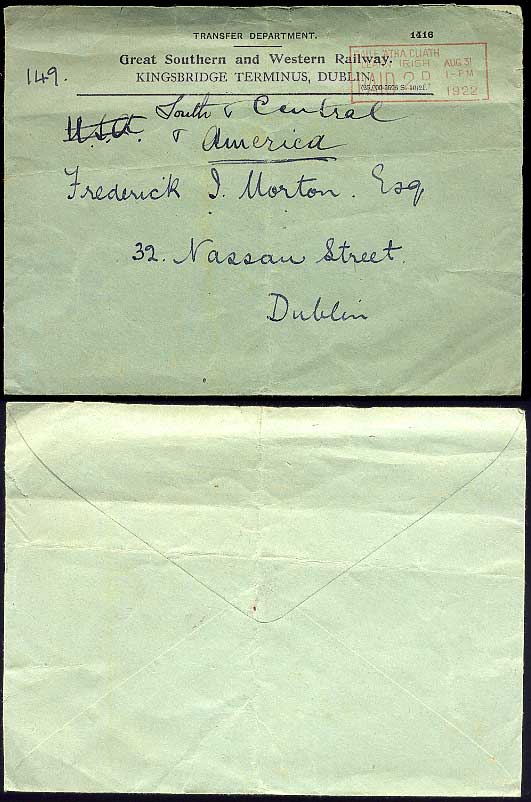 TRANSFER DEPARTMENT. 1416
Great Southern and Western Railway.
KINGSBRIDGE TERMINUS, DUBLIN.
ATHA CLIATH
IRISH AUG 31
PAID 2D 1-PM
1922
149.
South & Central
U.S.A. & America
Frederick I. Morton. Esq
32. Nassau Street.
Dublin